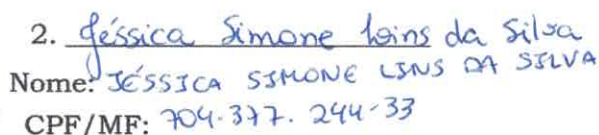 2. Jéssica Simone Lins da Silva
Nome: JÉSSICA SIMONE LINS DA SILVA
CPF/MF: 704.377.244-33